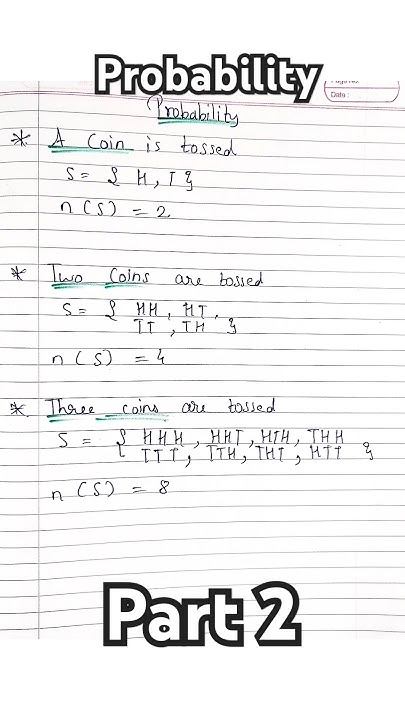 Probability
Page No.
Date :
Probability
* A coin is tossed
S = { H, T }
n (S) = 2
* Two coins are tossed
S = { HH, HT,
TT, TH }
n (S) = 4
* Three coins are tossed
S = { HHH, HHT, HTH, THH
TTT, TTH, THT, HTT }
n (S) = 8
Part 2